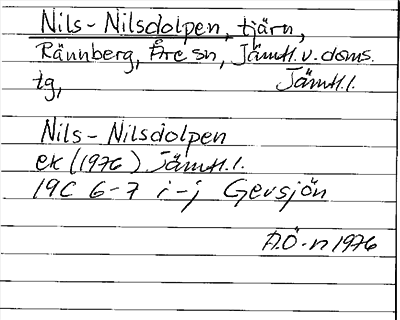 Nils-Nilsdolpen, tjärn,
Rännberg, Åre sn, Jämtl. v. doms.
tg, Jämtl. l.
Nils-Nilsdolpen
ek (1976) Jämtl. l.
19C 6-7 i-j Gevsjön
A.Ö-n 1976